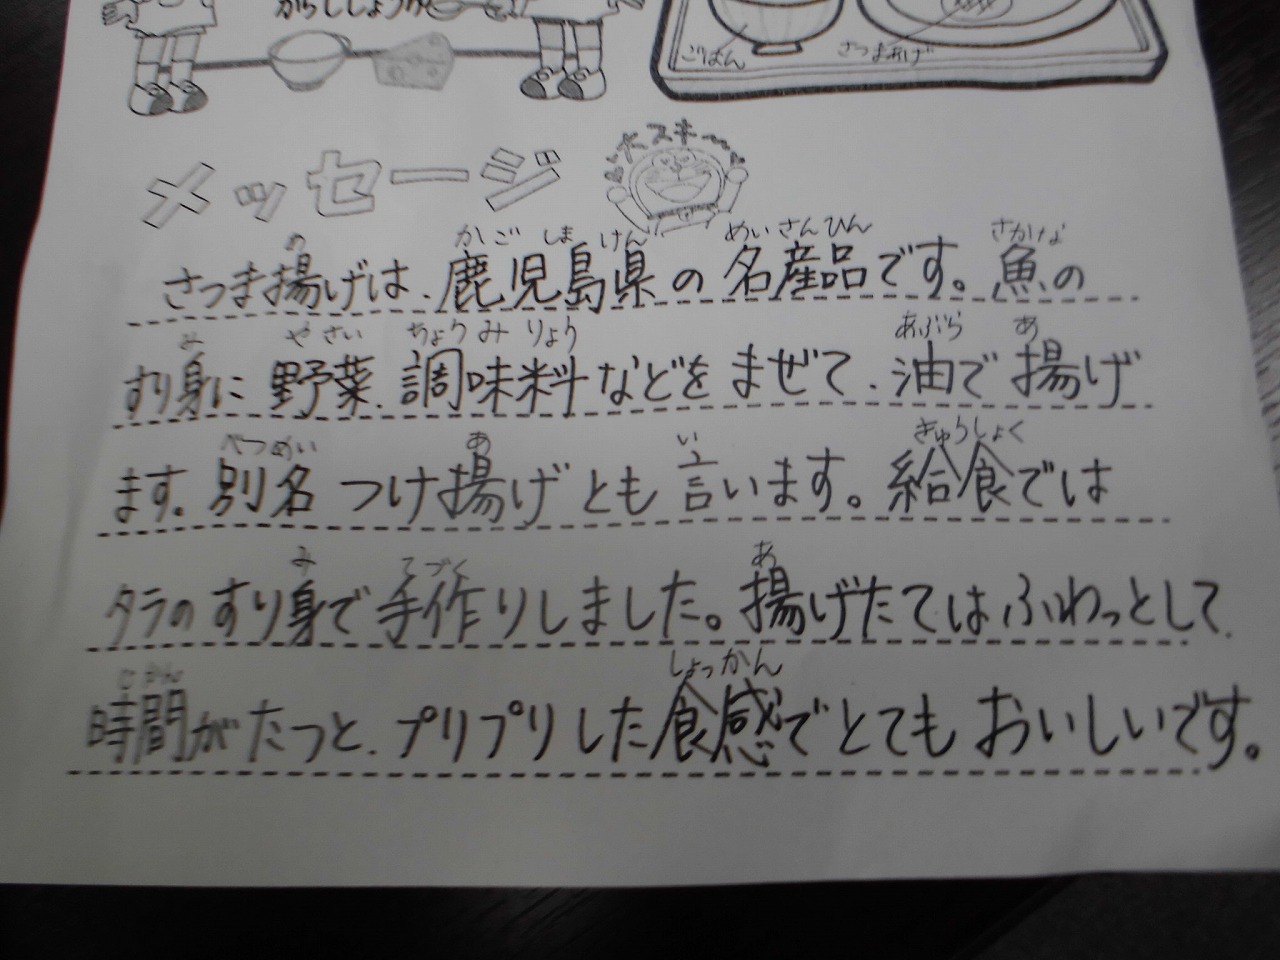 ごはん
さつま揚げ
メッセージ
大スキ〜
さつま揚げは、鹿児島県の名産品です。魚の
すり身に野菜、調味料などをまぜて、油で揚げ
ます。別名つけ揚げとも言います。給食では
タラのすり身で手作りしました。揚げたてはふわっとして、
時間がたつと、プリプリした食感でとてもおいしいです。